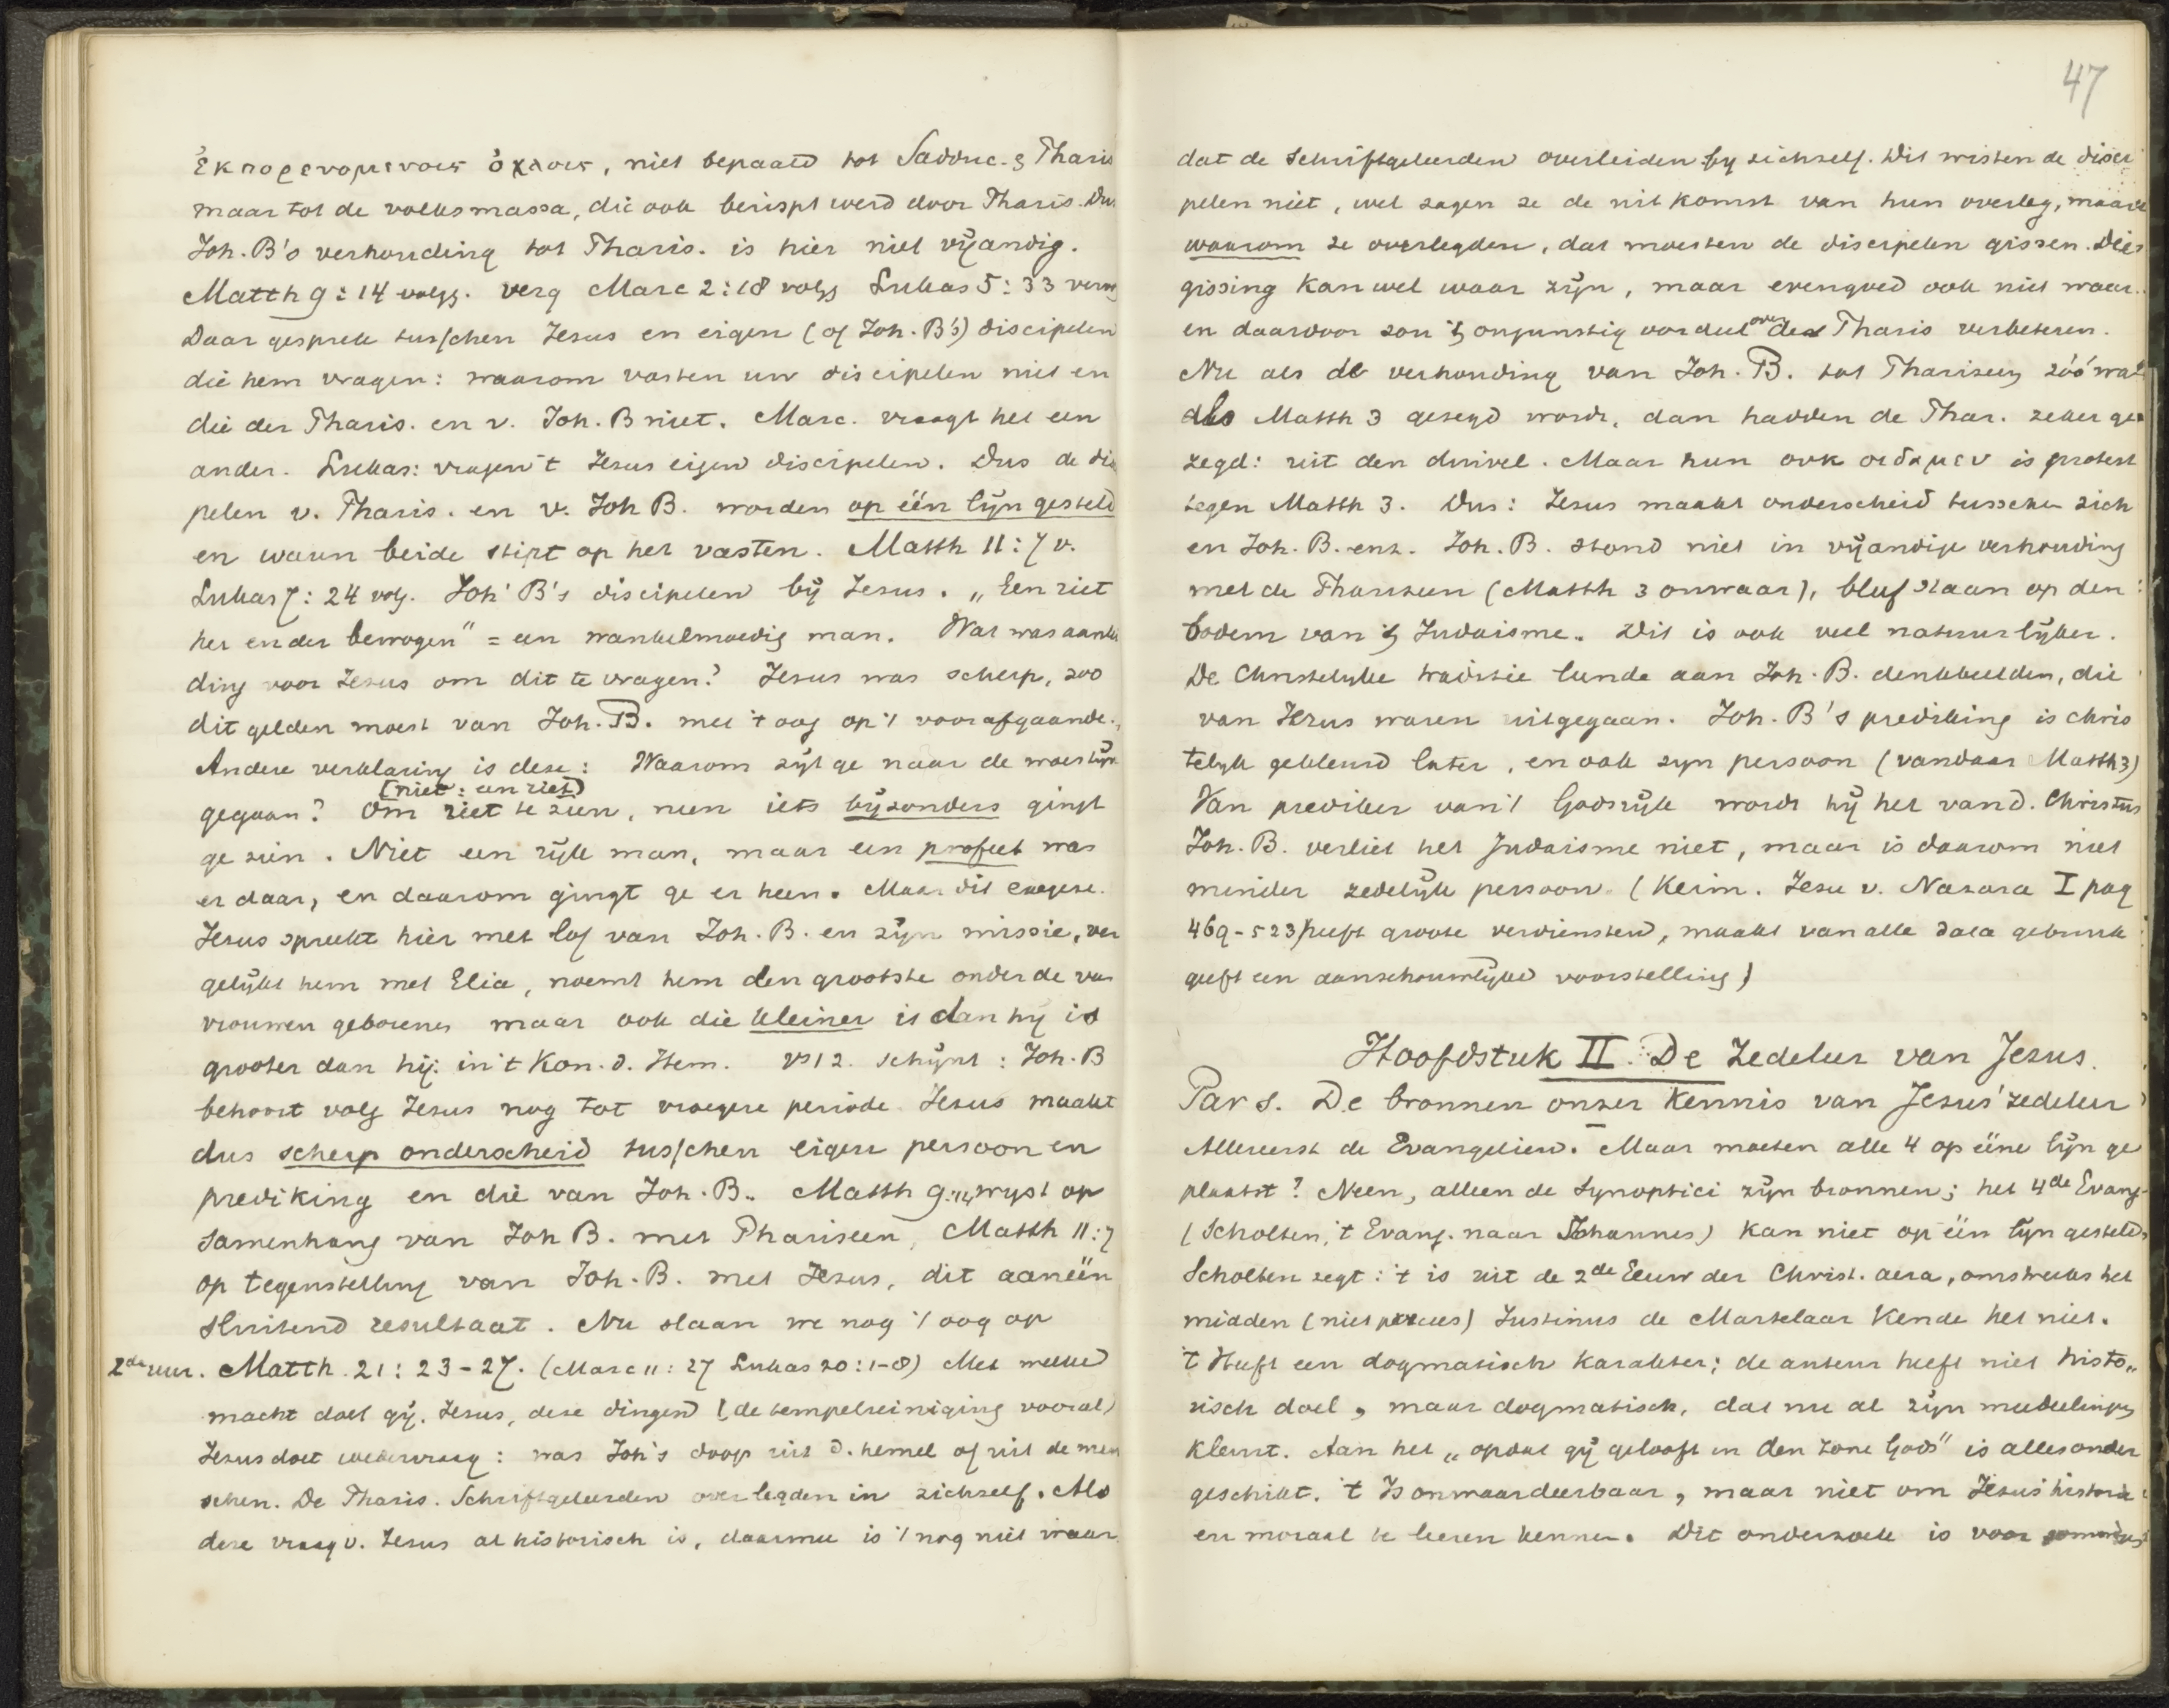 ἐκπορευομενοις ὀχλοις, niet bepaald tot Sadduc. & Pharis
maar tot de volksmassa, die ook berispt werd door Pharis. Dus
Joh. B's verhouding tot Pharis. is hier niet vijandig.
Matth 9:14 volgg. verg Marc 2:18 volgg Lukas 5:33 verv
Daar gesprek tusschen Jezus en eigen (of Joh. B's) discipelen
die hem vragen: waarom vasten uw discipelen niet en
die der Pharis. en v. Joh. B niet. Marc. vraagt het een
ander. Lukas: vragen 't Jezus eigen discipelen. Dus de disci
pelen v. Pharis. en v. Joh B. worden op één lijn gesteld
en waren beide stipt op het vasten. Matth 11:7 v.
Lukas 7:24 volg. Joh' B's discipelen bij Jezus. „Een riet
her en der bewogen" = een wankelmoedig man. Wat was aanlei
ding voor Jezus om dit te vragen? Jezus was scherp, zoo
dit gelden moest van Joh. B. met 't oog op 't voorafgaande.
Andere verklaring is deze: Waarom zijt ge naar de woestijn
(niet: een riet)
gegaan? Om riet te zien, neen iets bijzonders gingt
ge zien. Niet een rijk man, maar een profeet was
er daar, en daarom gingt ge er heen. Maar dit exegese.
Jezus spreekt hier met lof van Joh. B. en zijn missie, ver
gelijkt hem met Elia, noemt hem den grootste onder de van
vrouwen geborenen maar ook die kleiner is dan hij is
grooter dan hij: in 't Kon. d. Hem. vs 12. schijnt: Joh. B
behoort volg Jezus nog tot vroegere periode. Jezus maakt
dus scherp onderscheid tusschen eigen persoon en
prediking en die van Joh. B.. Matth 9:14 wijst op
samenhang van Joh B. met Phariseen, Matth 11:7
op tegenstelling van Joh. B. met Jezus, dit aaneen
sluitend resultaat. Nu slaan we nog 't oog op
2de uur. Matth. 21:23-27. (Marc 11:27 Lukas 20:1-8) Met welke
macht doet gij, Jezus, deze dingen (de tempelreiniging vooral)
Jezus doet wedervraag: was Joh's doop uit d. hemel of uit de men
schen. De Pharis. Schriftgeleerden overlegden in zichzelf. Als
deze vraag v. Jezus al historisch is, daarmee is 't nog niet waar
47
dat de Schriftgeleerden overleiden by zichzelf. Dit wisten de disci
pelen niet, wel zagen ze de uitkomst van hun overleg, maar
waarom ze overlegden, dat moesten de discipelen gissen. Die
gissing kan wel waar zijn, maar evengoed ook niet waar.
en daardoor zou 't ongunstig oordeel over de Pharis verbeteren.
Nu als de verhouding van Joh. B. tot Phariseen zóó was
als Matth 3 gezegd wordt, dan hadden de Phar. zeker ge
zegd: uit den duivel. Maar hun ουκ οιδαμεν is protest
tegen Matth 3. Dus: Jezus maakt onderscheid tusschen zich
en Joh. B. enz. Joh. B. stond niet in vijandige verhouding
met de Phariseen (Matth 3 onwaar), bleef staan op den
bodem van 't Judaisme. Dit is ook veel natuurlijker.
De Christelyke traditie leende aan Joh. B. denkbeelden, die
van Jezus waren uitgegaan. Joh. B's prediking is chris
telyk gekleurd later, en ook zyn persoon (vandaar Matth 3)
Van prediker van 't Godsrijk wordt hij het van d. Christus
Joh. B. verliet het Judaisme niet, maar is daarom niet
minder zedelijk persoon. (Keim. Jesu v. Nazara I pag
469-523 heeft groote verdiensten, maakt van alle data gebruik
geeft een aanschouwlijke voorstelling)
Hoofdstuk II. De Zedeleer van Jezus.
Par 1. De bronnen onzer Kennis van Jezus' zedeleer
Allereerst de Evangelien. Maar moeten alle 4 op ééne lijn ge
plaatst? Neen, alleen de Synoptici zijn bronnen; het 4de Evang.
(Scholten, 't Evang. naar Johannes) kan niet op één lijn gesteld.
Scholten zegt: 't is uit de 2de Eeuw der Christ. aera, omstreeks het
midden (niet precies) Justinus de Martelaar Kende het niet.
't Heeft een dogmatisch karakter; de auteur heeft niet histo„
risch doel, maar dogmatisch, dat nu al zijn mededeelingen
kleurt. Aan het „opdat gij gelooft in den zone Gods" is alles onder
geschikt. 't Is onwaardeerbaar, maar niet om Jezus' historie
en moraal te leeren kennen. Dit onderzoek is voor